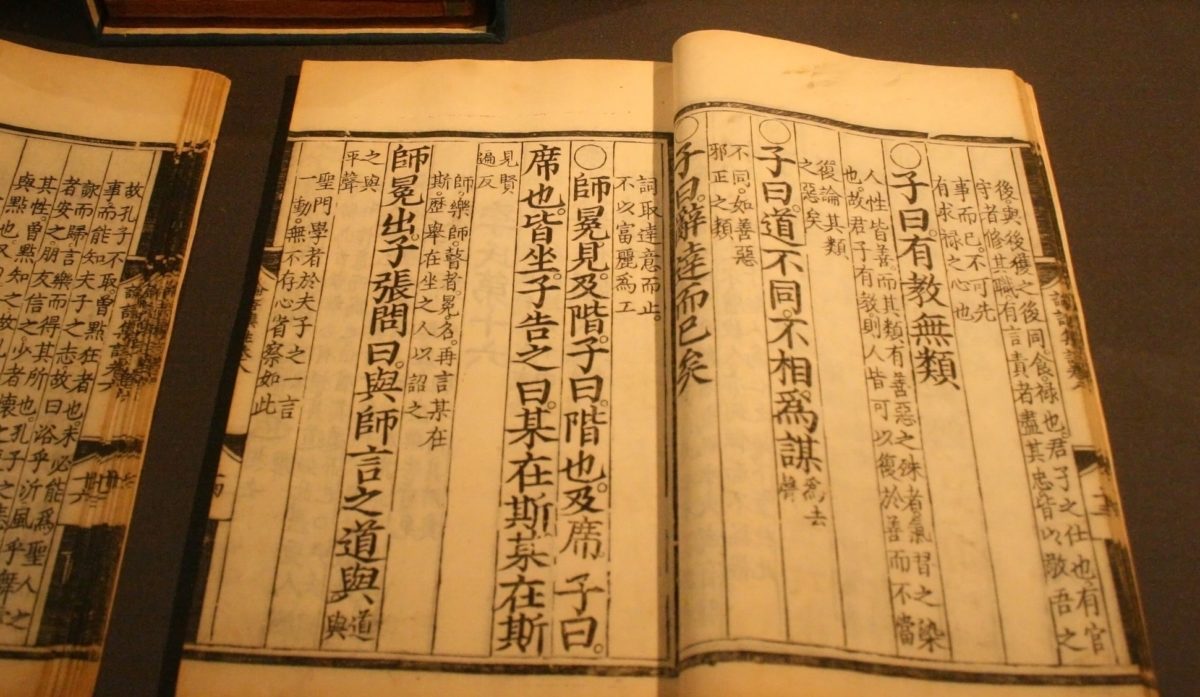 後與後獲之後同食祿也君子之仕也有官
守者修其職有言責者盡其忠皆以敬吾之
事而已不可先
有求祿之心也
○子曰有教無類
人性皆善而其類有善惡之殊者氣習之染
也故君子有教則人皆可以復於善而不當
復論其類
之惡矣
○子曰道不同不相為謀為去聲
不同如善惡
邪正之類
○子曰辭達而已矣
詞取達意而止
不以富麗為工
○師冕見及階子曰階也及席子曰
席也皆坐子告之曰某在斯某在斯
見賢
遍反
師樂師瞽者冕名再言某在
斯歷舉在坐之人以詔之
師冕出子張問曰與師言之道與道與
之與
平聲
聖門學者於夫子之一言
一動無不存心者察如此
故孔子不取曾點狂者也未必能為聖人之
事而能知夫子之志故曰浴乎沂風乎舞
詠而歸言樂而得其所也孔子之志
者安之朋友信之少者懷之
其性曾點知之故孔
與點也又曰